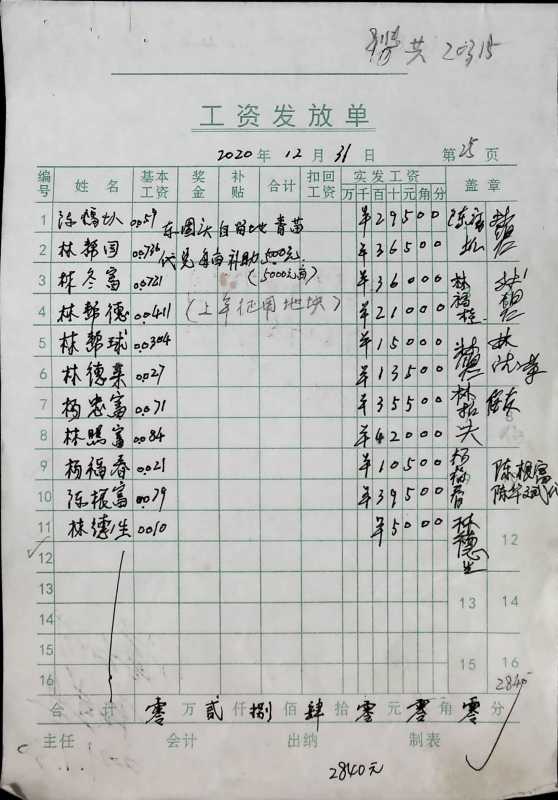 共 20315
工资发放单
2020 年 12 月 31 日 第 25 页
编号 姓名 基本工资 奖金 补贴 合计 扣回工资 实发工资 盖章
万 千 百 十 元 角 分
1 0.059 东園头自留地青苗 ¥29500
2 林帮国 0.0736 代兑每亩补助5000元 ¥36500
3 林冬富 0.0721 (5000元/亩) ¥36000 林福桂
4 林帮德 0.0411 (上年征用地块) ¥21000
5 林帮球 0.0304 ¥15000
6 林德荣 0.027 ¥13500
7 杨忠富 0.071 ¥35500
8 林赐富 0.084 ¥42000
9 杨福春 0.021 ¥10500 杨福春 陈根富
10 陈根富 0.079 ¥39500 陈华斌代
11 林德生 0.010 ¥5000 林德生
12 12
13 13 14
14
15 15 16
16 2840
合计 零万贰仟捌佰肆拾零元零角零分
主任 会计 出纳 制表
2840元